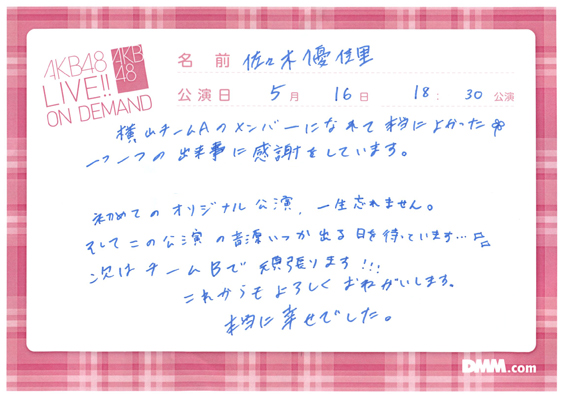 AKB48
LIVE!!
ON DEMAND
AKB
48
名前 佐々木優佳里
公演日 5月 16日 18:30公演
横山チームAのメンバーになれて本当によかった
一つ一つの出来事に感謝をしています。
初めてのオリジナル公演、一生忘れません。
そしてこの公演の音源いつか出る日を待っています…
次はチームBで頑張ります!!!
これからもよろしくおねがいします。
本当に幸せでした。
DMM.com